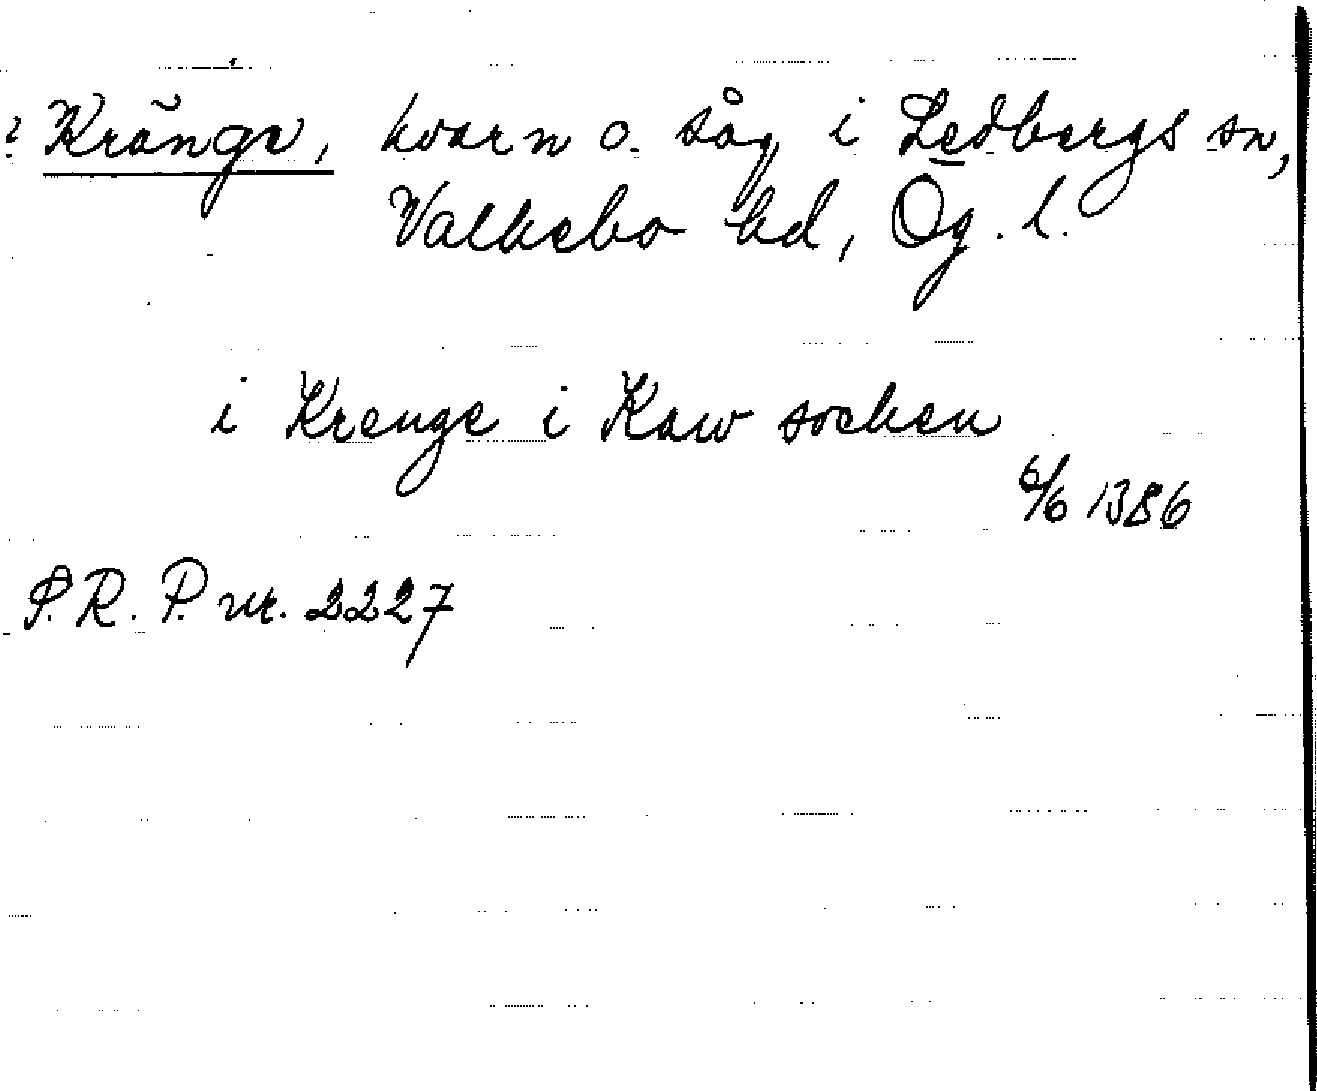 ? Kränge, kvarn o. såg i Ledbergs sn,
Valkebo hd, Ög. l.
i Krenge i Kaw socken
6/6 1386
S.R.P. nr. 2227